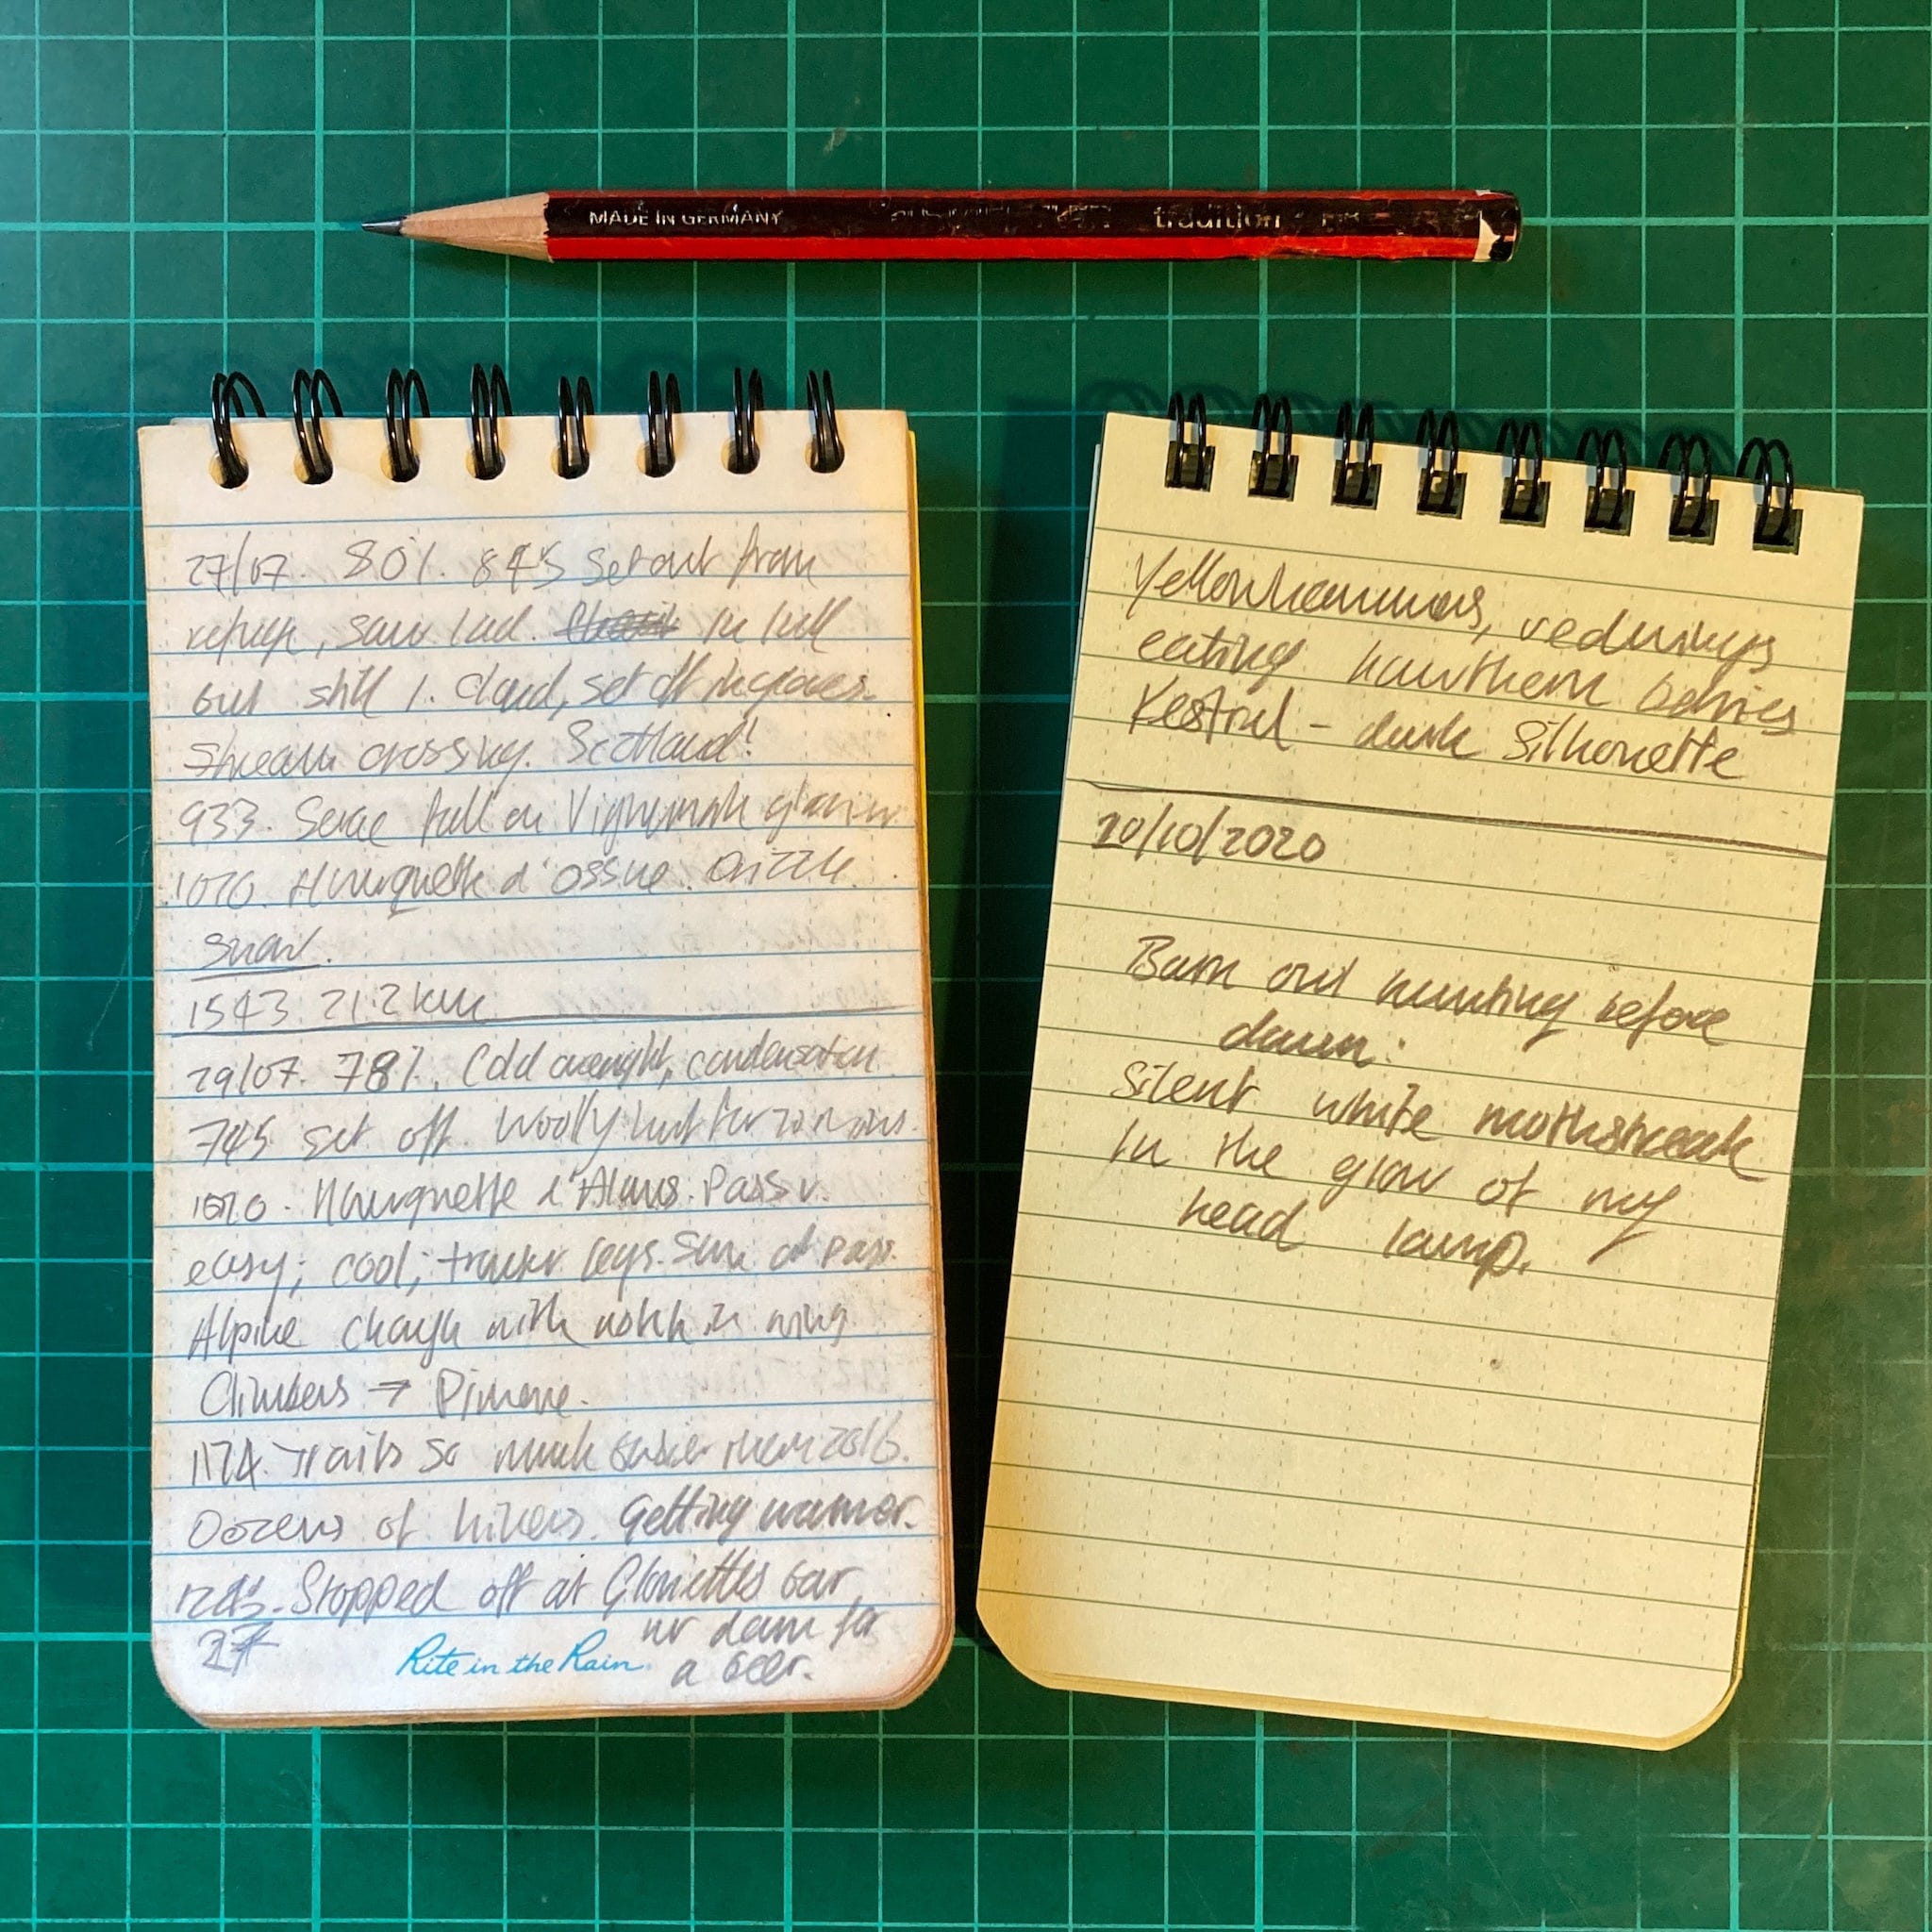 MADE IN GERMANY tradition
27/07. 80%. 845 Set out from
refuge, saw lad. in full
but still 1. cloud, set off in gloves.
Stream crossing. Scotland!
933. Serac fall on Vignemale glacier
1010. Hourquette d'Ossue. Drizzle.
Snow.
1543 21.2km
29/07. 78%. Cold overnight, condensation
745 set off. Woolly hat for 20 mins.
1010. Hourquette d'Alans. Pass v.
easy; cool; legs. Sun at pass.
Alpine chough with notch in wing
Climbers → Pimene.
1174. Trails so much busier than 2016.
Dozens of hikers. Getting warmer.
Stopped off at Gloriettes bar
nr dam for
a beer.
27
Rite in the Rain
Yellowhammers, redwings
eating hawthorn berries
Kestrel - dark silhouette
20/10/2020
Barn owl hunting before
dawn.
Silent white mothstreak
in the glow of my
head lamp.